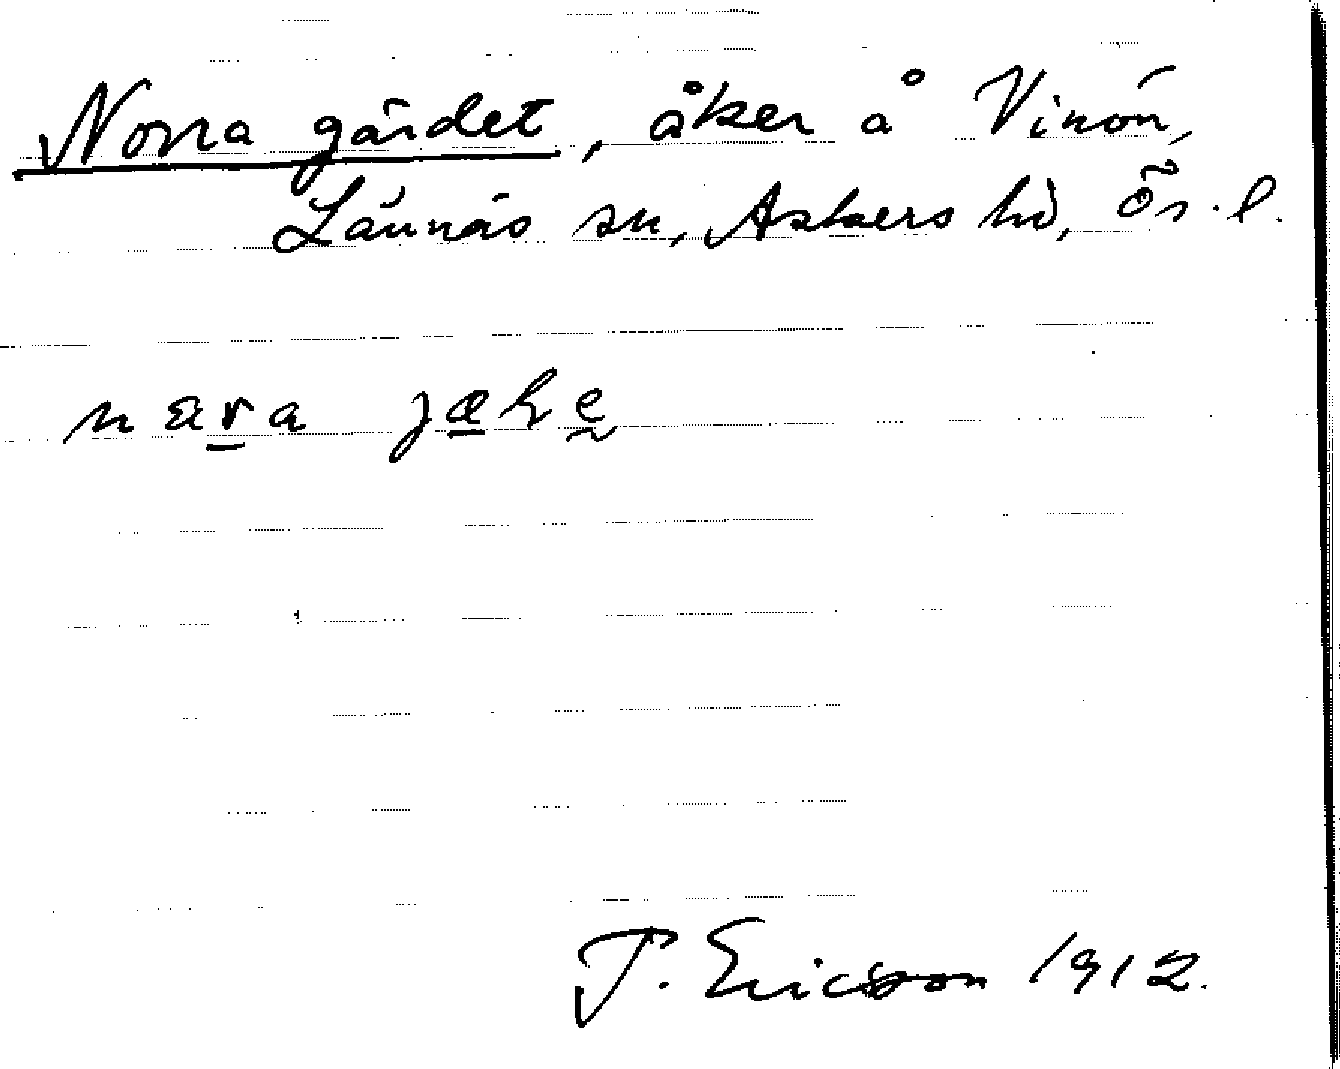 Norra gärdet, åker å Vinön,
Lännäs sn, Askers hd, Ör. l.
J. Ericsson 1912.